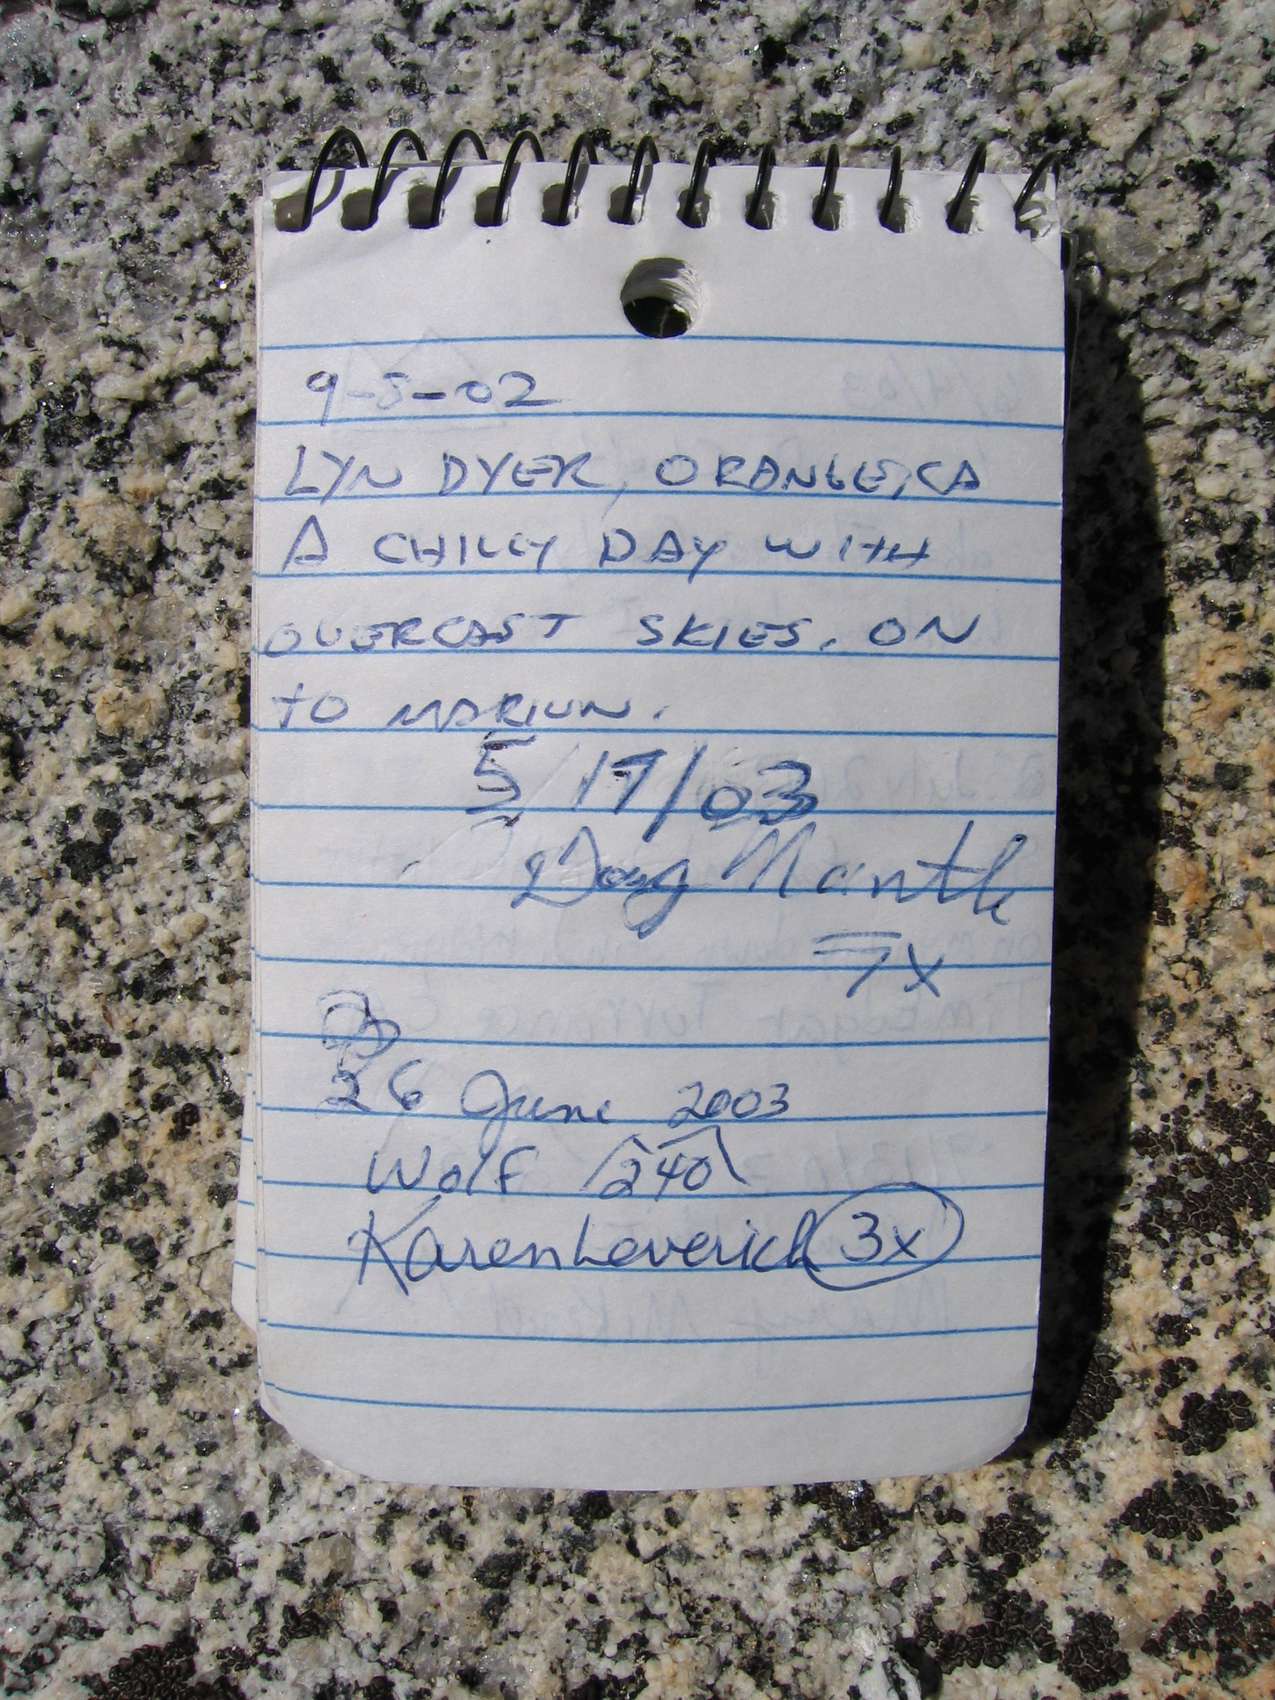 9-8-02
LYN DYER, ORANGE, CA
A CHILLY DAY WITH
OVERCAST SKIES. ON
TO MARION.
5/17/03
Doug Mantle
7x
26 June 2003
Wolf 240
Karen Leverich 3x